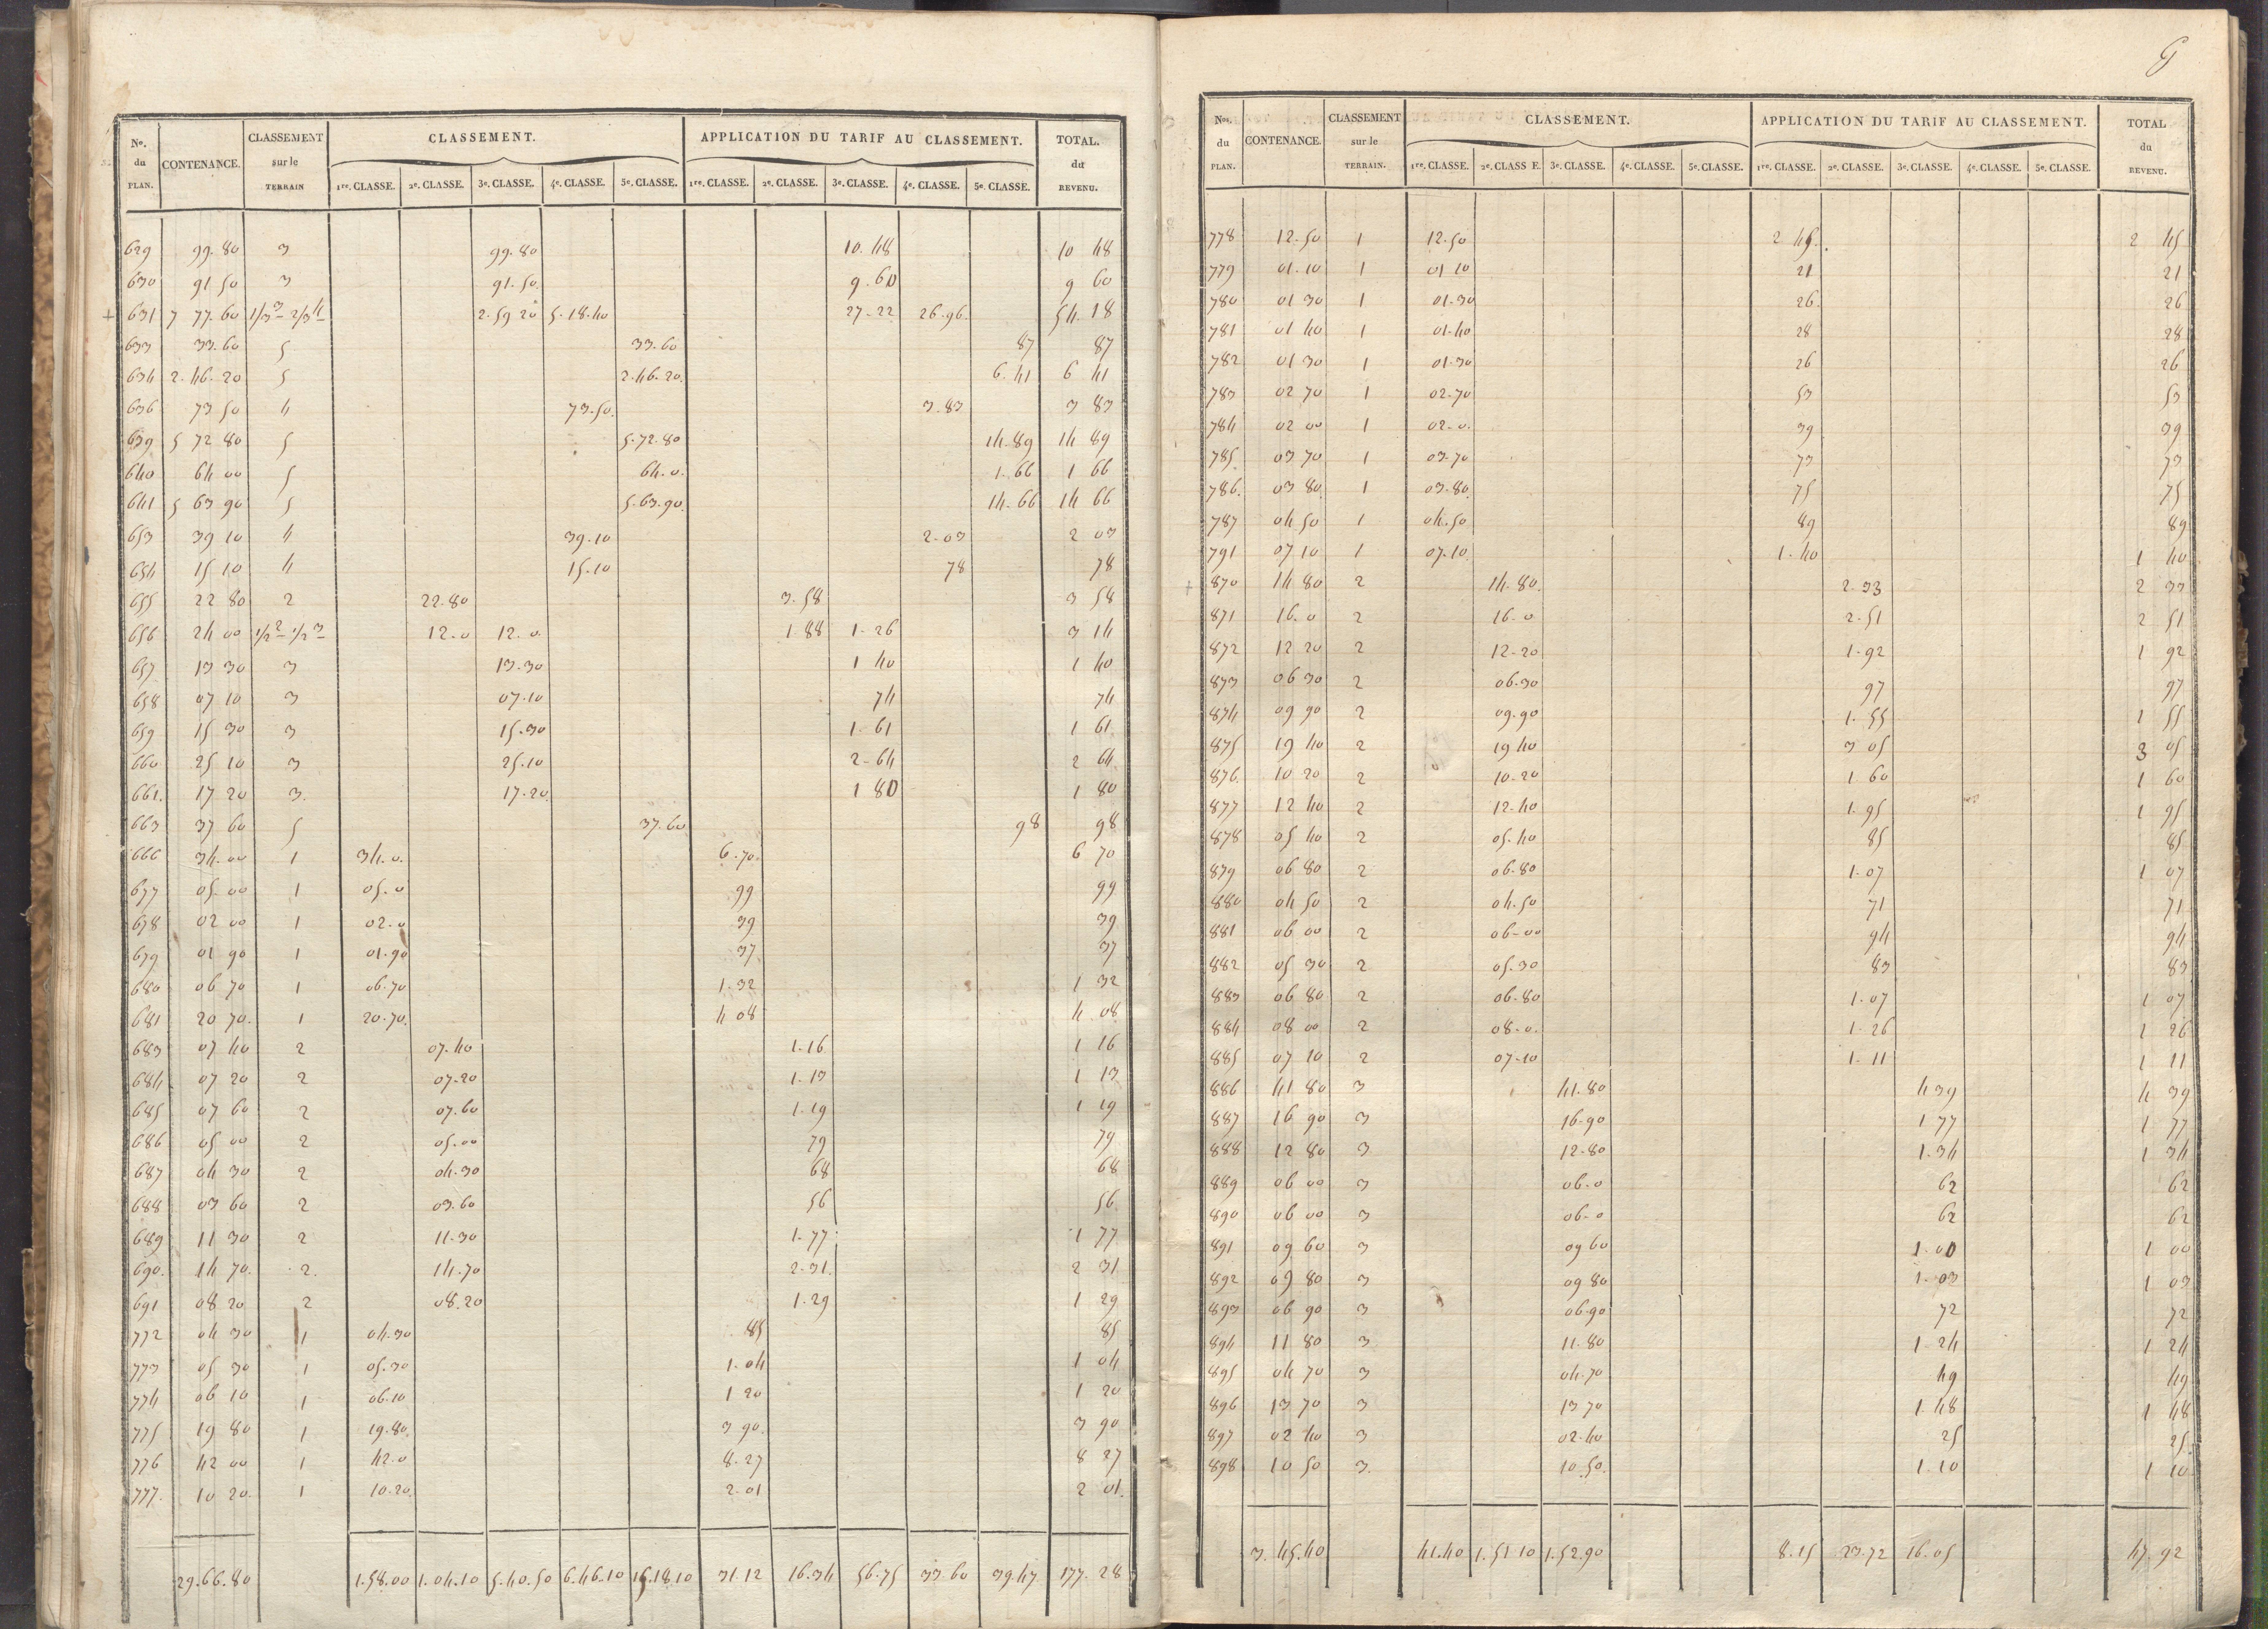 No. du PLAN. CONTENANCE. CLASSEMENT sur le TERRAIN CLASSEMENT. APPLICATION DU TARIF AU CLASSEMENT. TOTAL. du REVENU.
1re. CLASSE. 2e. CLASSE. 3e. CLASSE. 4e. CLASSE. 5e. CLASSE. 1re. CLASSE. 2e. CLASSE. 3e. CLASSE. 4e. CLASSE. 5e. CLASSE.
629 99.80 3 99.80 10.48 10 48
630 91 50 3 91.50 9.60 9 60
+ 631 7 77.60 1/3 3 2/3 4 2.59 20 5.18.40 27-22 26.96 54.18
633 33.60 5 33.60 87 87
634 2.46.20 5 2.46.20 6.41 6 41
636 73 50 4 73.50 3.83 3 83
639 5 72 80 5 5.72.80 14.89 14 89
640 64 00 5 64.0 1.66 1 66
641 5 63 90 5 5.63.90 14.66 14 66
653 39 10 4 39.10 2-03 2 03
654 15 10 4 15.10 78 78
655 22 80 2 22.80 3.58 3 58
656 24 00 1/2 2 1/2 3 12.0 12.0 1 88 1-26 3 14
657 13 30 3 13.30 1 40 1 40
658 07 10 3 07.10 74 74
659 15 30 3 15.30 1-61 1 61
660 25 10 3 25.10 2-64 2 64
661. 17 20 3. 17.20 1 80 1 80
663 37 60 5 37.60 98 98
666 34.00 1 34.0 6.70 6 70
677 05.00 1 05.0 99 99
678 02 00 1 02.0 39 39
679 01 90 1 01.90 37 37
680 06 70 1 06.70 1.32 1 32
681 20 70. 1 20.70. 4 08 4 08
683 07 40 2 07.40 1.16 1 16
684 07 20 2 07.20 1.13 1 13
685 07 60 2 07.60 1.19 1 19
686 05 00 2 05.00 79 79
687 04 30 2 04.30 68 68
688 03 60 2 03.60 56 56
689 11 30 2 11.30 1.77 1 77
690. 14 70. 2. 14.70 2.31 2 31
691 08 20 2 08.20 1.29 1 29
772 04 30 1 04.30 85 85
773 05 30 1 05.30 1.04 1 04
774 06 10 1 06.10 1 20 1 20
775 19 80 1 19.80 3 90 3 90
776 42 00 1 42.0 8.27 8 27
777. 10 20. 1 10.20 2-01 2 01
29.66.80 1.58.00 1.04.10 5.40.50 6.46.10 15.18.10 31.12 16.34 56.75 33.60 39.47 177.28
Nos. du PLAN. CONTENANCE. CLASSEMENT sur le TERRAIN. CLASSEMENT. APPLICATION DU TARIF AU CLASSEMENT. TOTAL du REVENU.
1re. CLASSE. 2e. CLASS E. 3e. CLASSE. 4e. CLASSE. 5e. CLASSE. 1re. CLASSE. 2e. CLASSE. 3e. CLASSE. 4e. CLASSE. 5e. CLASSE.
778 12.50 1 12.50 2 45. 2 45
779 01.10 1 01 10 21 21
780 01 30 1 01.30 26. 26
781 01 40 1 01.40 28 28
782 01 30 1 01.30 26 26
783 02 70 1 02.70 53 53
784 02 00 1 02.0. 39 39
785 03 70 1 03.70 73 73
786. 03 80. 1 03.80. 75 75
787 04 50 1 04.50 89 89
791 07 10 1 07.10 1.40 1 40
+ 870 14 80 2 14.80. 2.33 2 33
871 16.0 2 16.0 2.51 2 51
872 12 20 2 12-20 1.92 1 92
873 06 30 2 06.30 97 97
874 09 90 2 09.90 1.55 1 55
875 19 40 2 19 40 3 05 3 05
876. 10 20 2 10.20 1 60 1 60
877 12 40 2 12.40 1.95 1 95
878 05 40 2 05.40 85 85
879 06 80 2 06.80 1.07 1 07
880 04 50 2 04.50 71 71
881 06 00 2 06-00 94 94
882 05 30 2 05.30 83 83
883 06 80 2 06.80 1.07 1 07
884 08 00 2 08.0. 1-26 1 26
885 07 10 2 07.10 1.11 1 11
886 41 80 3 41.80 4 39 4 39
887 16 90 3 16.90 1 77 1 77
888 12 80 3 12.80 1.34 1 34
889 06 00 3 06.0 62 62
890 06 00 3 06-0 62 62
891 09 60 3 09 60 1.00 1 00
892 09 80 3 09 80 1.03 1 03
893 06 90 3 06.90 72 72
894 11 80 3 11.80 1.24 1 24
895 04 70 3 04.70 49 49
896 13 70 3 13 70 1.48 1 48
897 02 40 3 02.40 25 25.
898 10 50 3. 10.50. 1.10 1 10
3.45.40 41.40 1.51 10 1.52.90 8.15 23.72 16.05 47.92